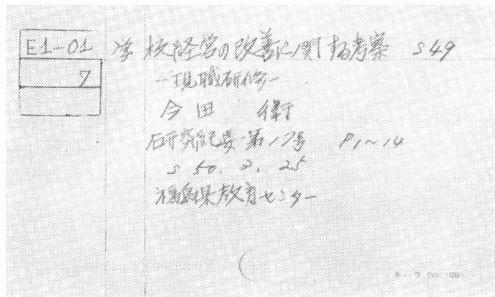 E1-01
7
学校経営の改善に関する考察 S49
―現職研修―
今田 衛
研究紀要 第17号 P1~14
S 50. 2. 25
福島県教育センター